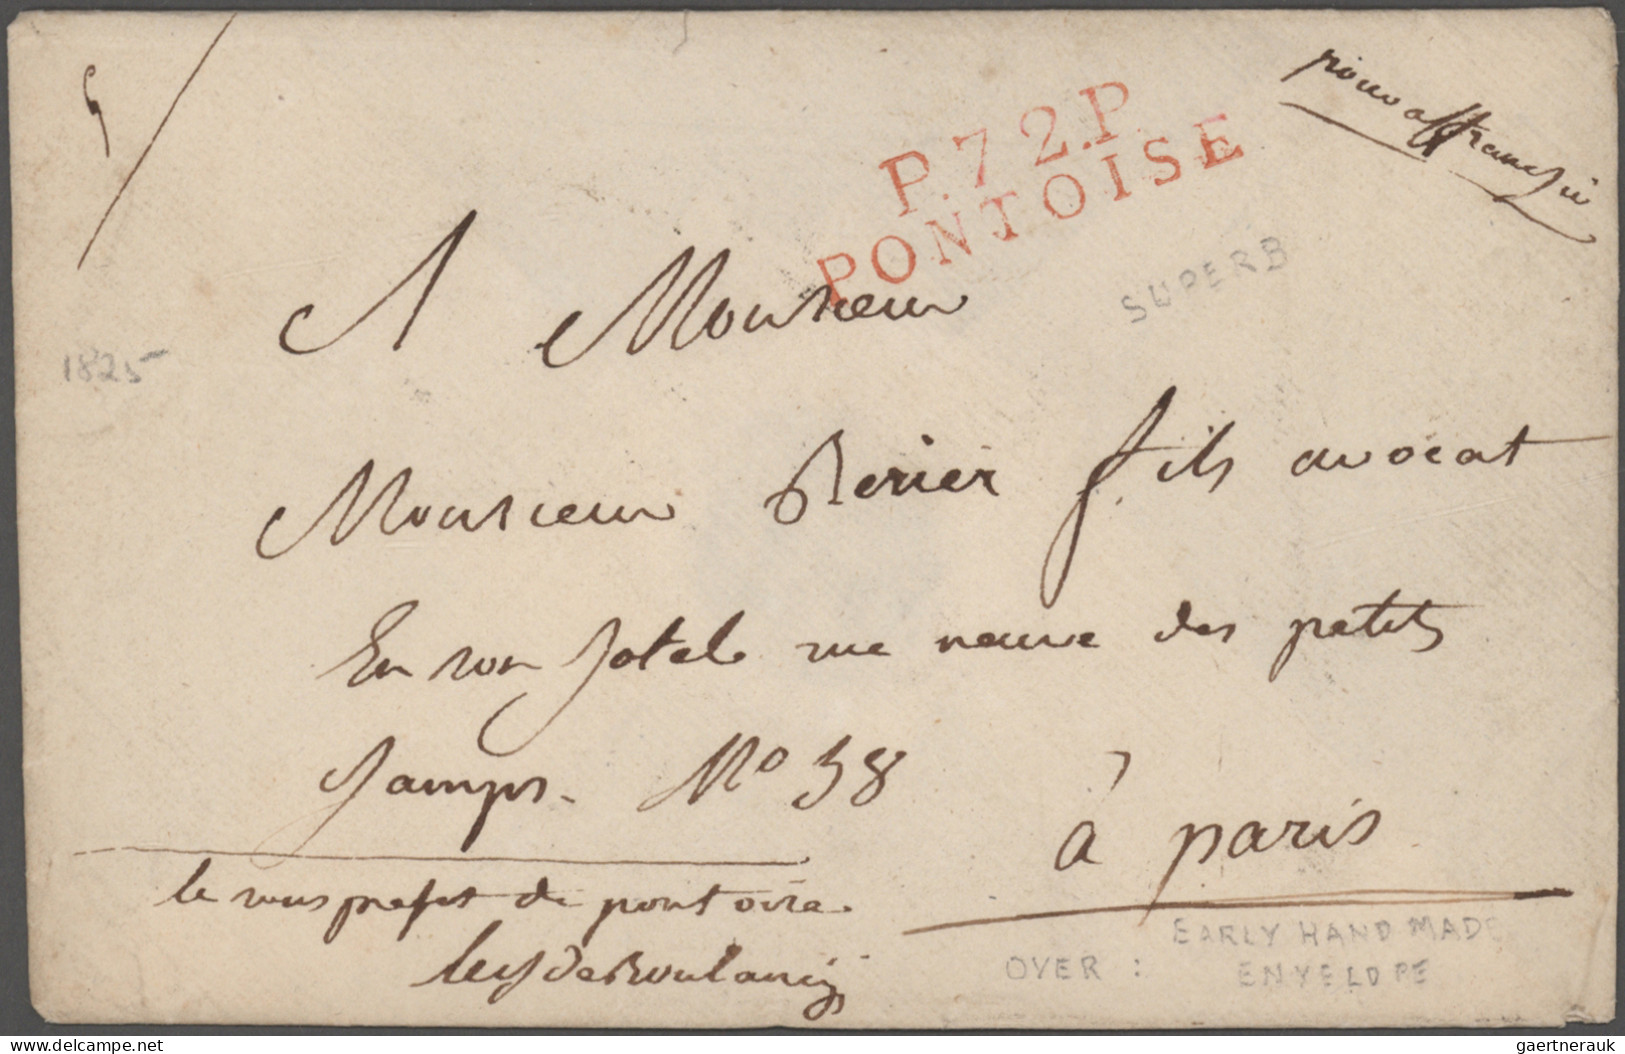 P.72.P
PONTOISE
A Monsieur
SUPERB
1825
Monsieur fils avocat
En son hotel rue neuve des petits
Champs. No 38
à paris
le sous prefet de pontoise.
EARLY HAND MADE
OVER : ENVELOPE
delcampe.net
gaertnerauk